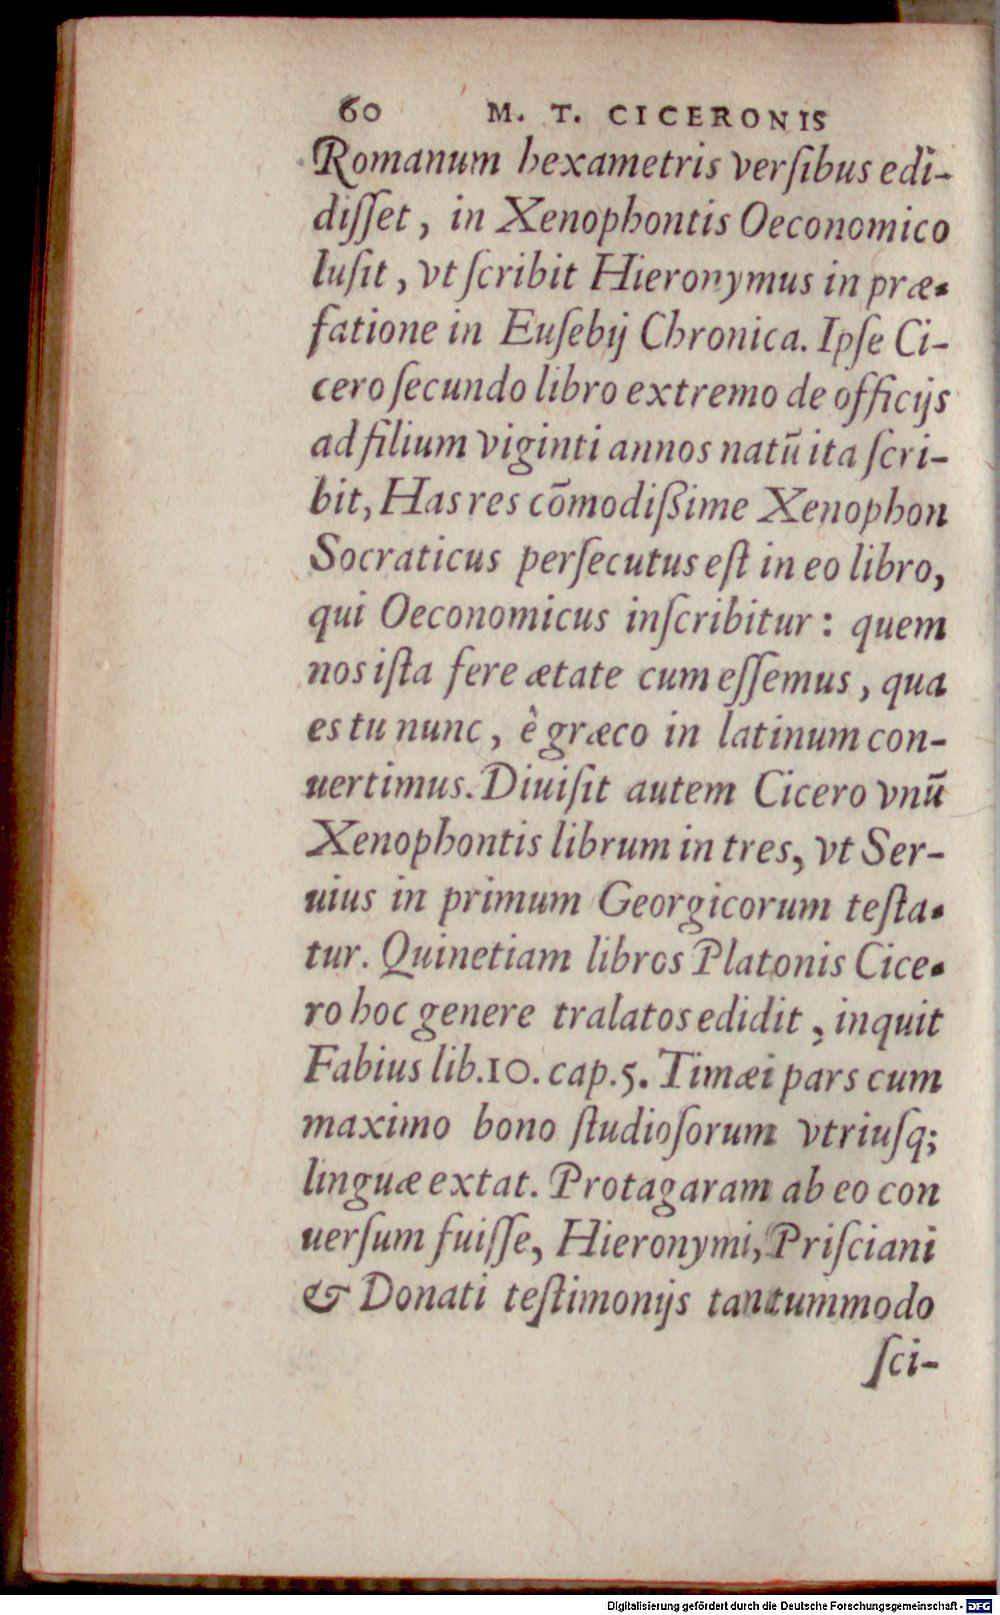 60 M. T. CICERONIS
Romanum hexametris verſibus edi-
diſſet, in Xenophontis Oeconomico
luſit, vt ſcribit Hieronymus in præ-
fatione in Euſebij Chronica. Ipſe Ci-
cero ſecundo libro extremo de officijs
ad filium viginti annos natū ita ſcri-
bit, Has res cōmodißime Xenophon
Socraticus perſecutus eſt in eo libro,
qui Oeconomicus inſcribitur: quem
nos iſta fere ætate cum eſſemus, qua
es tu nunc, è græco in latinum con-
uertimus. Diuiſit autem Cicero vnū
Xenophontis librum in tres, vt Ser-
uius in primum Georgicorum teſta-
tur. Quinetiam libros Platonis Cice-
ro hoc genere tralatos edidit, inquit
Fabius lib.10. cap.5. Timæi pars cum
maximo bono ſtudioſorum vtriuſq;
linguæ extat. Protagaram ab eo con
uerſum fuiſſe, Hieronymi, Priſciani
& Donati teſtimonijs tantummodo
ſci-
Digitalisierung gefördert durch die Deutsche Forschungsgemeinschaft - DFG